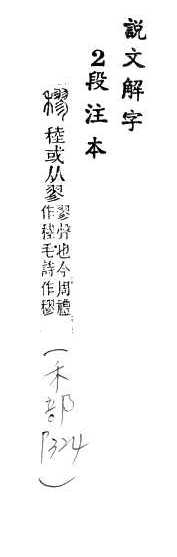 說文解字
2段注本
穋 稑或从翏
翏聲也今周禮
作稑毛詩作穋
(禾部
P324)